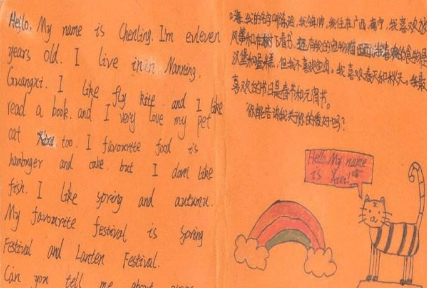 Hello, My name is Chenling. I'm eleven
years old. I live in in Nanning,
Guangxi. I like fly kite and I like
read a book, and I very love my pet
cat too. I favourite food is
hamburger and cake. but I don't like
fish. I like spring and autumn.
My favourite festival is Spring
Festival and Lanten Festival.
Can you tell me about
嗨,我的名字叫陈玲,我住在广西南宁,我喜欢放
风筝和看书,
汉堡和蛋糕,但我不喜欢鱼肉。我喜欢春天和秋天。我最
喜欢的节日是春节和元宵节。
你能告诉我关于你的爱好吗?
Hello My name
is